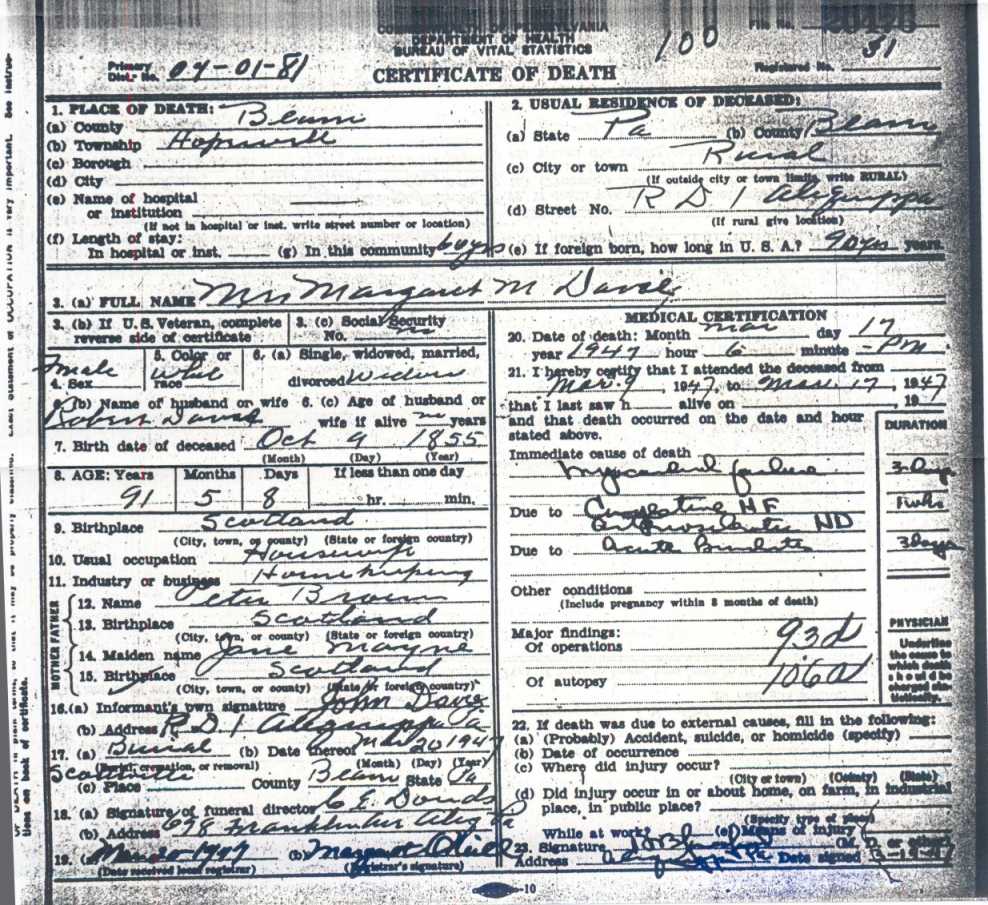 COMMONWEALTH OF PENNSYLVANIA
DEPARTMENT OF HEALTH
BUREAU OF VITAL STATISTICS
File No. 
100
Primary Dist. No. 04-01-81
CERTIFICATE OF DEATH
Registered No. 31
1. PLACE OF DEATH:
(a) County
(b) Township Hopewell
(c) Borough
(d) City
(e) Name of hospital
or institution
(If not in hospital or inst. write street number or location)
(f) Length of stay:
In hospital or inst. (g) In this community 60 yrs
2. USUAL RESIDENCE OF DECEASED:
(a) State Pa (b) County
(c) City or town Rural
(If outside city or town limits, write RURAL)
(d) Street No. R D 1 Aliquippa
(If rural give location)
(e) If foreign born, how long in U. S. A.? 90 yrs years.
3. (a) FULL NAME Mrs Margaret M Davis
3. (b) If U. S. Veteran, complete
reverse side of certificate
3. (c) Social Security
No. no
4. Sex Female
5. Color or
race White
6. (a) Single, widowed, married,
divorced Widow
6. (b) Name of husband or wife
Robert Davis
6. (c) Age of husband or
wife if alive years
7. Birth date of deceased Oct 9 1855
(Month) (Day) (Year)
8. AGE: Years Months Days If less than one day
91 5 8 hr. min.
9. Birthplace Scotland
(City, town, or county) (State or foreign country)
10. Usual occupation Housewife
11. Industry or business Homekeeping
FATHER
12. Name Peter Brown
13. Birthplace Scotland
(City, town, or county) (State or foreign country)
MOTHER
14. Maiden name Jane Mayne
15. Birthplace Scotland
(City, town, or county) (State or foreign country)
16. (a) Informant's own signature John Davis
(b) Address R. D. 1 Aliquippa Pa
17. (a) Burial (b) Date thereof Mar 20 1947
(Burial, cremation, or removal) (Month) (Day) (Year)
(c) Place County State Pa
18. (a) Signature of funeral director
(b) Address 698 Franklin Ave Aliq Pa
19. (a) Mar 20-1947 (b) Margaret
(Date received local registrar) (Registrar's signature)
MEDICAL CERTIFICATION
20. Date of death: Month Mar day 17
year 1947 hour 6 minute - PM
21. I hereby certify that I attended the deceased from
Mar. 9, 1947, to Mar. 17, 1947
that I last saw h alive on , 19
and that death occurred on the date and hour
stated above.
DURATION
Immediate cause of death
myocardial failure 3 days
Due to Congestive HF
Arteriosclerotic HD
Due to Acute Bronchitis 3 days
Other conditions
(Include pregnancy within 3 months of death)
Major findings:
Of operations 93d
Of autopsy 106a
PHYSICIAN
Underline
the cause to
which death
should be
charged sta-
tistically.
22. If death was due to external causes, fill in the following:
(a) (Probably) Accident, suicide, or homicide (specify)
(b) Date of occurrence
(c) Where did injury occur?
(City or town) (County) (State)
(d) Did injury occur in or about home, on farm, in industrial
place, in public place?
(Specify type of place)
While at work? (e) Means of injury
23. Signature (M. D. or other)
Address Date signed 3-19-47
10